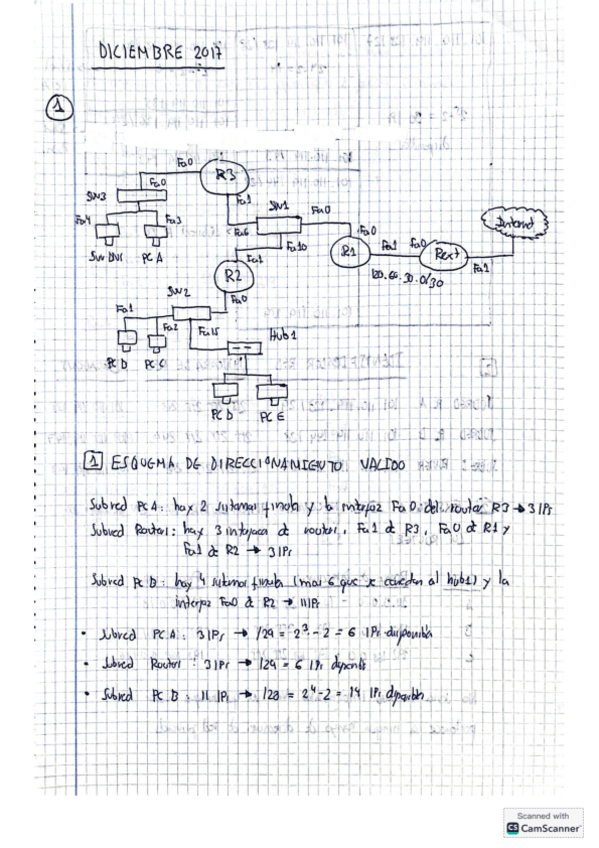 DICIEMBRE 2017
1
Fa0
R3
Fa0
SW3
Fa1
SW1
Fa0
Fa4
Fa3
Fa6
Fa0
Internet
Srv DNS
PC A
Fa10
R1
Fa1
Fa0
Rext
Fa1
Fa1
R2
120.66.30.0/30
SW2
Fa0
Fa1
Fa2
Fa15
Hub1
PC D
PC C
PC D
PC E
1 ESQUEMA DE DIRECCIONAMIENTO VALIDO
Subred PC A: hay 2 sistemas finales y la interfaz Fa0 del router R3 → 3 IPs
Subred Routers: hay 3 interfaces de routers, Fa1 de R3, Fa0 de R1 y
Fa1 de R2 → 3 IPs
Subred PC B: hay 4 sistemas finales (mas 6 que se conectan al hub1) y la
interfaz Fa0 de R2 → 11 IPs
• Subred PC A: 3 IPs → /29 = 2³-2 = 6 IPs disponibles
• Subred Routers: 3 IPs → /29 = 6 IPs disponibles
• Subred PC B: 11 IPs → /28 = 2⁴-2 = 14 IPs disponibles
Scanned with
CS CamScanner